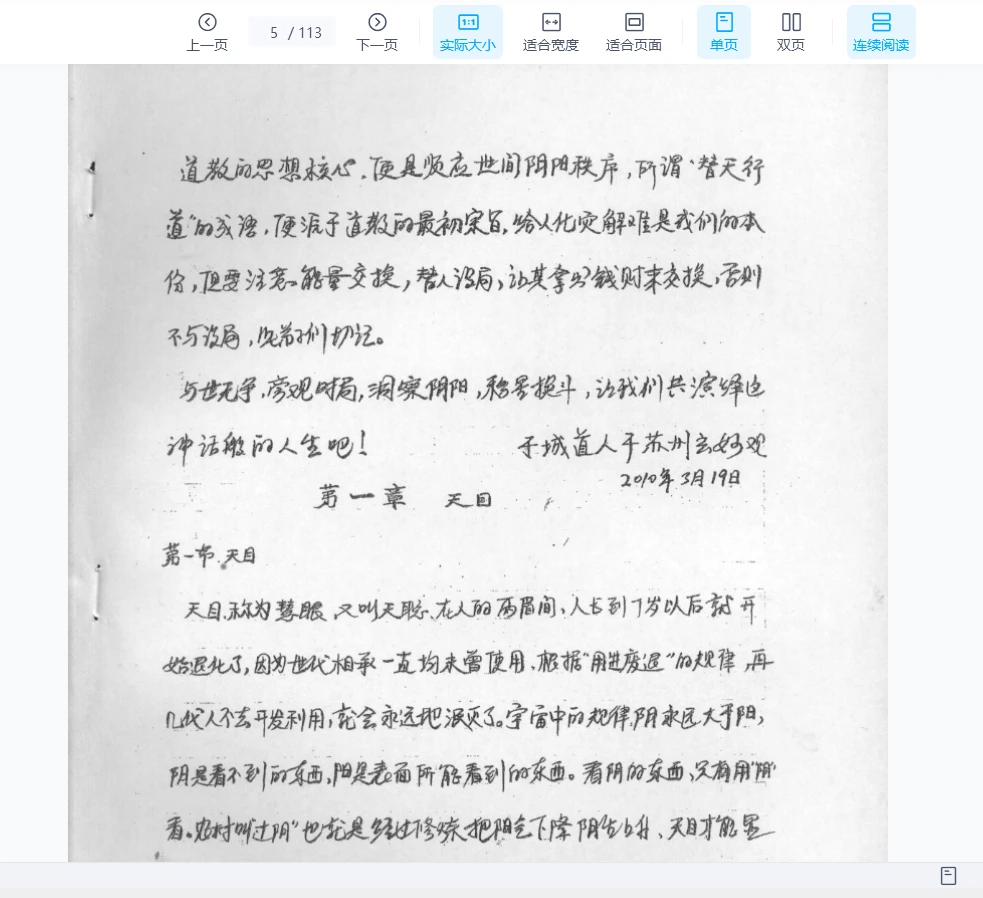 上一页 5 / 113 下一页 实际大小 适合宽度 适合页面 单页 双页 连续阅读
道教的思想核心,便是顺应世间阴阳秩序,所谓“替天行
道”的成语,便源于道教的最初宗旨,给人化灾解难是我们的本
份,但要注意能量交换,替人设局,让其拿出钱财来交换,否则
不与设局,此弟子们切记。
与世无争,旁观时局,洞察阴阳,移星换斗,让我们共演绎这
神话般的人生吧!
于城道人于苏州玄妙观
2010年3月19日
第一章 天目
第一节.天目
天目,称为慧眼,又叫天聪,在人的两眉间,人长到7岁以后就开
始退化了,因为世代相承一直均未曾使用,根据“用进废退”的规律,再
几代人不去开发利用,就会永远地泯灭了。宇宙中的规律,阴永远大于阳,
阴是看不到的东西,阳是表面所能看到的东西。看阴的东西,只有用“阴”
看。农村叫“过阴”也就是经过修炼把阳气下降阴气上升、天目才能显